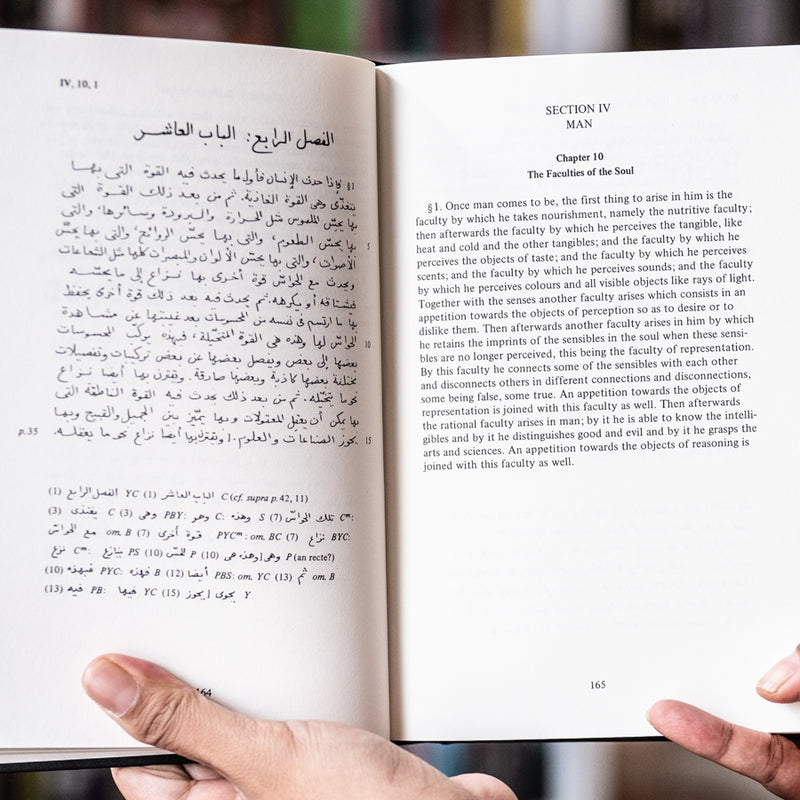 IV, 10, 1
الفصل الرابع: الباب العاشر
§1 فإذا حدث الإنسان فأول ما يحدث فيه القوة التي بها
يتغذّى وهي القوة الغاذية. ثم من بعد ذلك القوة التي
بها يحسّ الملموس مثل الحرارة والبرودة وسائرها، والتي
بها يحسّ الطعوم، والتي بها يحسّ الروائح، والتي بها يحسّ 5
الأصوات، والتي بها يحسّ الألوان والمبصرات كلها مثل الشعاعات
ويحدث مع الحواسّ قوة أخرى بها نزاع إلى ما يحسّه
فيشتاقه أو يكرهه. ثم يحدث فيه بعد ذلك قوة أخرى يحفظ
بها ما ارتسم في نفسه من المحسوسات بعد غيبتها عن مشاهدة
الحواسّ لها وهذه هي القوة المتخيّلة، فبهذه يركّب المحسوسات 10
بعضها إلى بعض ويفصل بعضها عن بعض تركيبات وتفصيلات
مختلفة بعضها كاذبة وبعضها صادقة. ويقترن بها أيضا نزاع
نحو ما يتخيّله. ثم من بعد ذلك يحدث فيه القوة الناطقة التي
بها يمكن أن يعقل المعقولات وبها يميّز بين الجميل والقبيح وبها
يحوز الصناعات والعلوم. [ويقترن بها أيضا نزاع نحو ما يعقله. 15 p.35
(1) الفصل الرابع YC (1) الباب العاشر C (cf. supra p. 42, 11)
(3) يغتذى C (3) وهى PBY: وهو C: وهذه S (7) تلك الحواسّ Cᵐ:
مع الحواسّ om. B (7) قوة أخرى PYCᵐ: om. BC (7) نزاع BYC:
نزع Cᵐ: ينازع PS (10) للحسّ P (10) وهى [وهذه هى P (an recte?)
(10) فبهذه PYC: فهذه B (12) أيضا PBS: om. YC (13) ثم om. B
(13) فيه PB: فيها YC (15) يحوز] يحوى Y.
164
SECTION IV
MAN
Chapter 10
The Faculties of the Soul
§1. Once man comes to be, the first thing to arise in him is the
faculty by which he takes nourishment, namely the nutritive faculty;
then afterwards the faculty by which he perceives the tangible, like
heat and cold and the other tangibles; and the faculty by which he
perceives the objects of taste; and the faculty by which he perceives
scents; and the faculty by which he perceives sounds; and the faculty
by which he perceives colours and all visible objects like rays of light.
Together with the senses another faculty arises which consists in an
appetition towards the objects of perception so as to desire or to
dislike them. Then afterwards another faculty arises in him by which
he retains the imprints of the sensibles in the soul when these sensi-
bles are no longer perceived, this being the faculty of representation.
By this faculty he connects some of the sensibles with each other
and disconnects others in different connections and disconnections,
some being false, some true. An appetition towards the objects of
representation is joined with this faculty as well. Then afterwards
the rational faculty arises in man; by it he is able to know the intelli-
gibles and by it he distinguishes good and evil and by it he grasps the
arts and sciences. An appetition towards the objects of reasoning is
joined with this faculty as well.
165